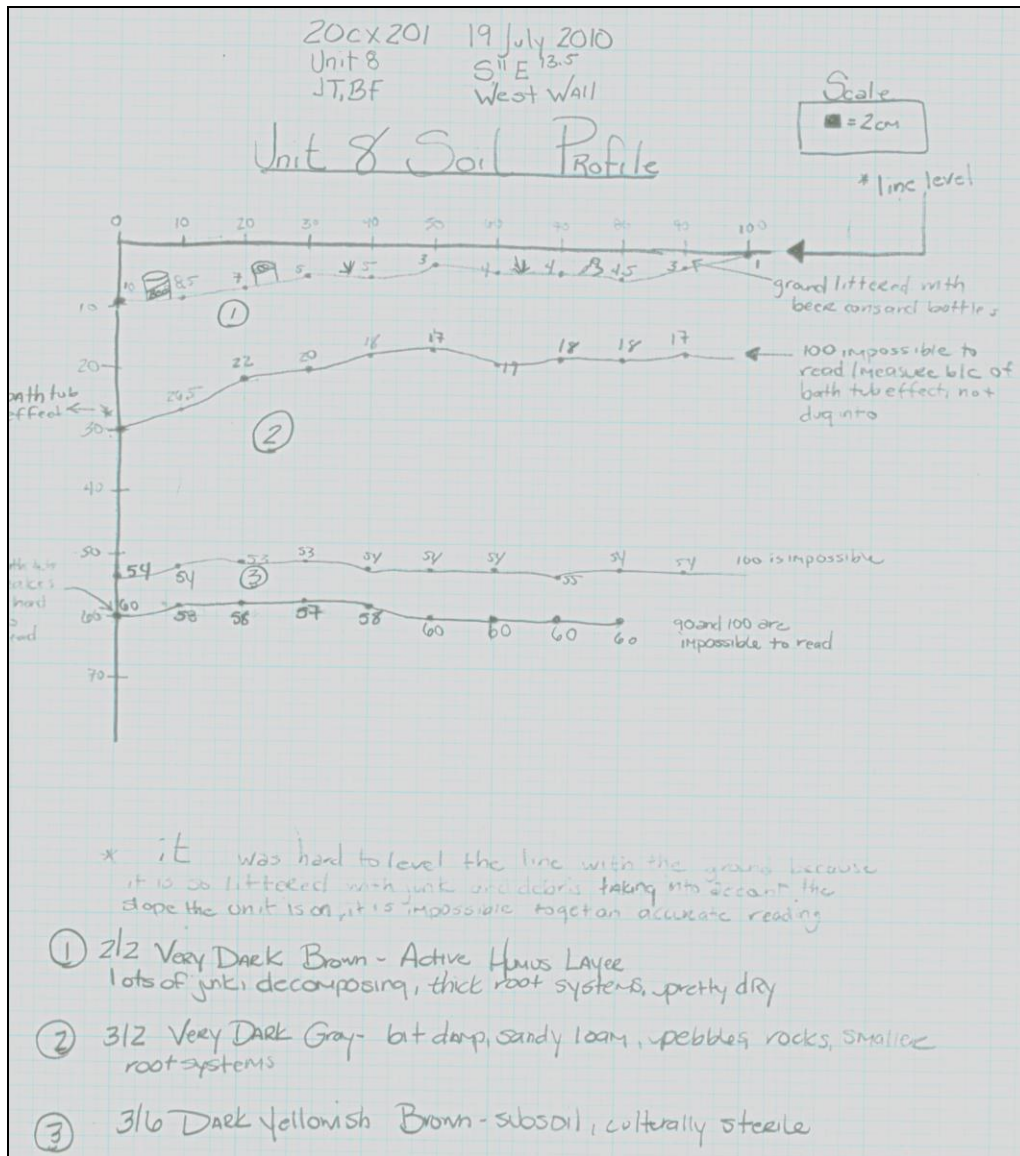 20CX201 19 July 2010
Unit 8 S11 E13.5
JT, BF West WAll
Scale
= 2cm
Unit 8 Soil Profile
* line level
0 10 20 30 40 50 60 70 80 90 100
10 8.5 7 5 5 3 4 4 4.5 3.5 1
grand litteerd with
beer cans and bottles
10
1
20
22 20 18 17 19 18 18 17
100 impossible to
read/measure b/c of
bath tub effect, not
dug into
bath tub
effect
30
2
40
50
54 54 53 53 54 54 54 55 54 54 100 is impossible
3
hard
60
60 58 58 57 58 60 60 60 60
90 and 100 are
impossible to read
70
* it was hard to level the line with the ground because
it is so littered with junk and debris taking into accant the
slope the unit is on, it is impossible to get an accurate reading
1 2/2 Very Dark Brown - Active Humus Layer
lots of junk, decomposing, thick root systems, pretty dry
2 3/2 Very Dark Gray - bit damp, sandy loam, pebbles, rocks, smaller
root systems
3 3/6 Dark Yellowish Brown - subsoil, culturally sterile